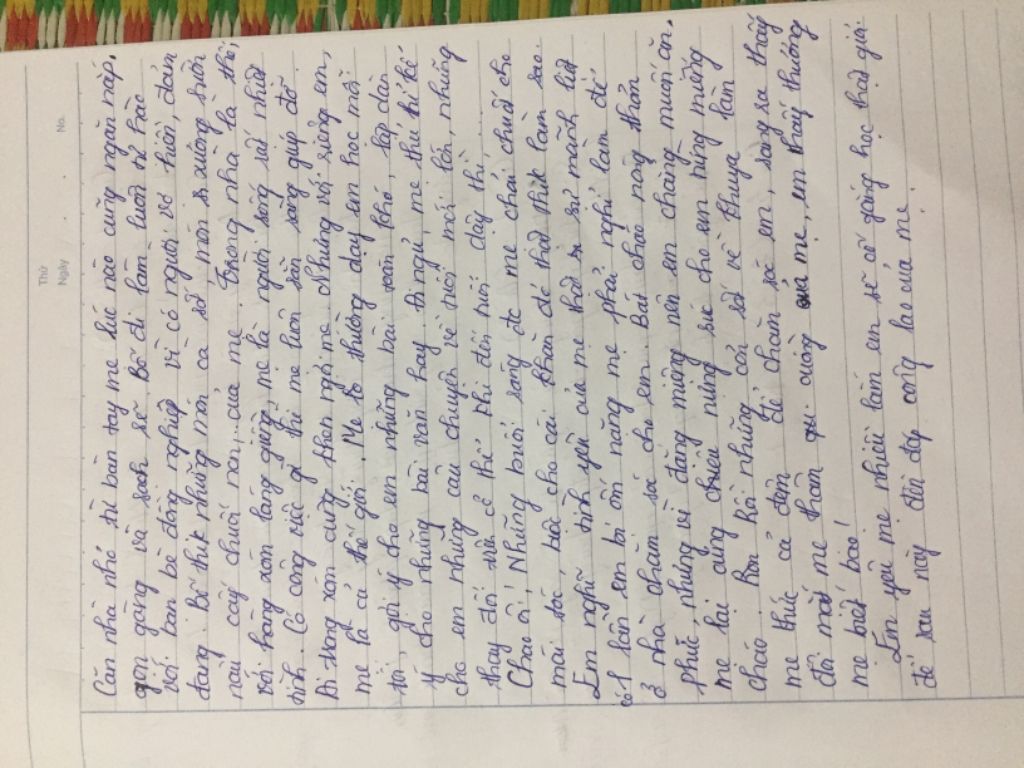 Thứ
Ngày
No.
Căn nhà nhỏ từ bàn tay mẹ lúc nào cũng ngăn nắp,
gọn gàng và sạch sẽ. Bố đi làm luôn tự hào
với bạn bè đồng nghiệp vì có người vợ hiền, đảm
đang. Bố thik những món cá sốt, món sườn
nấu cây chuối non của mẹ. Trong nhà là thế,
với hàng xóm láng giềng, mẹ là người sống rất nhiệt
tình. Có công việc gì thì mẹ luôn sẵn sàng giúp đỡ.
Đi trong xóm cũng khen ngợi mẹ. Nhưng với riêng em,
mẹ là cả thế giới. Mẹ thường dạy em học mỗi
tối, gợi ý cho em những bài toán khó, lập dàn
ý cho những bài văn hay. Đi ngủ, mẹ thủ thỉ kể
cho em những câu chuyện về tuổi mới lớn, những
thay đổi trên cơ thể khi đến tuổi dậy thì....
Chao ôi! Những buổi sáng đc mẹ chải chuốt cho
mái tóc, bấc cho cái khăn đỏ thật thik làm sao.
Em nghĩ tình yêu của mẹ thật sự có sứ mãnh liệt
có 1 lần em bị ốm nặng mẹ phải nghỉ làm để
ở nhà chăm sóc cho em. Bát cháo nóng thơm
phức, nhưng vì đắng miệng nên em chẳng muốn ăn.
Mẹ lại cũng chiều nũng sức cho em từng miếng
cháo. Rồi hồi những cơn sốt về khuya làm
mẹ thức cả đêm để chăm sóc em, sáng ra thấy
đôi mắt mẹ thâm quầng của mẹ, em thấy thương
mẹ biết bao!
Em yêu mẹ nhiều lắm em sẽ cố gắng học thật giỏi
để sau này đền đáp công lao của mẹ.